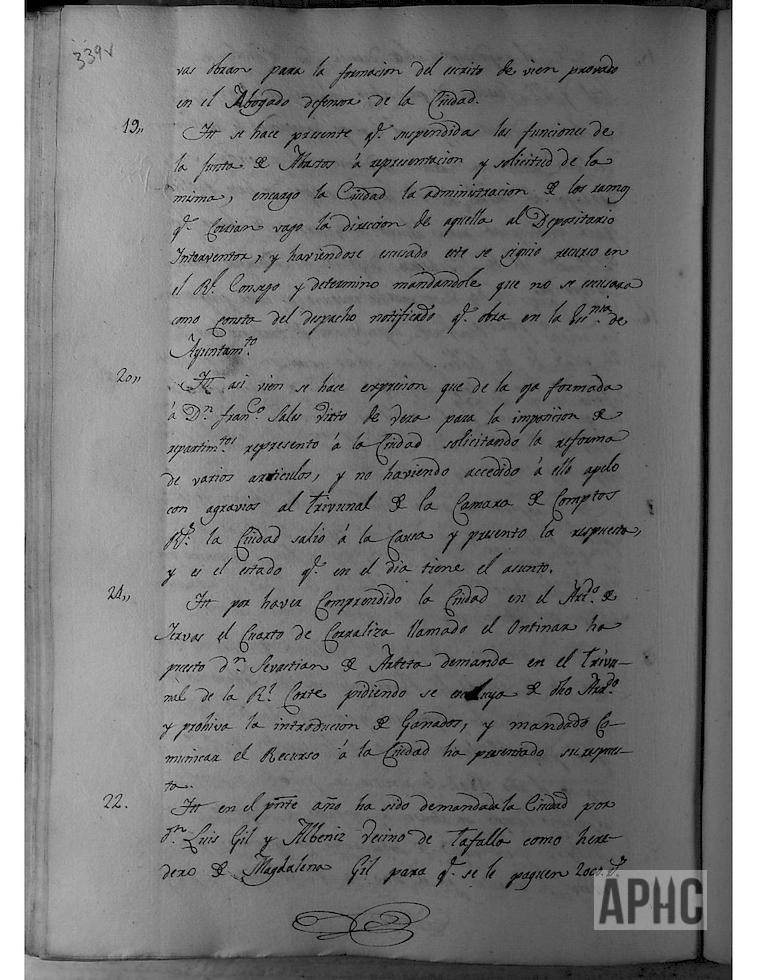 339v
vas obran para la formacion del escrito de vien provado
en el Abogado defensor de la Ciudad.
19,, Itt se hace presente q.e suspendidas las funciones de
la Junta de Abastos á representacion y solicitud de la
misma, encargo la Ciudad la administracion de los ramos
q.e Corrian vajo la direccion de aquella al Depositario
Interventor, y haviendose escusado este se siguio recurso en
el R.l Consejo y determino mandandole que no se escusara
como consta del despacho notificado q.e obra en la Ess.nia de
Ayuntam.to
20,, Itt asi vien se hace expresion que de la oja formada
á D.n Fran.co Sales Virto de Vera para la imposicion de
repartim.tos represento á la Ciudad solicitando la reforma
de varios articulos, y no haviendo accedido á ello apelo
con agravios al Trivunal de la Camara de Comptos
R.s la Ciudad salio á la Causa y presento la respuesta,
y es el estado q.e en el dia tiene el asunto.
21,, Itt por haver Comprendido la Ciudad en el Arr.do de
Yervas el Cuarto de Corraliza llamado el Ontinar ha
puesto d.n Sevastian de Arteta demanda en el Trivu-
nal de la R.l Corte pidiendo se excluya de dho Arr.do
y prohiva la introducion de Ganados, y mandado Co-
municar el Recurso á la Ciudad ha presentado su respues-
ta.
22. Itt en el pnte año ha sido demandada la Ciudad por
d.n Luis Gil y Albeniz vecino de Tafalla como here-
dero de Magdalena Gil para q.e se le paguen 2000. d.s
APHC